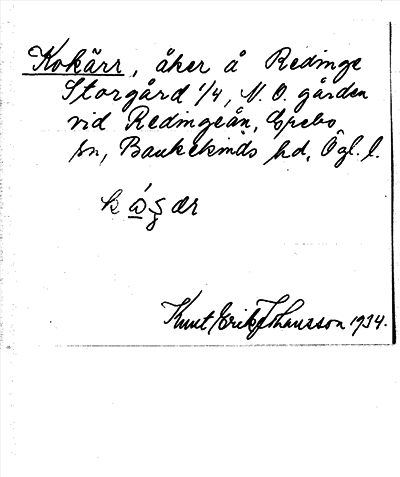 Kokärr, åker å Redinge
Storgård 1/4, N.O. gården
vid Redingeån,
sn, Bankekinds hd, Ögl. l.
Knut Erik Johansson 1934.